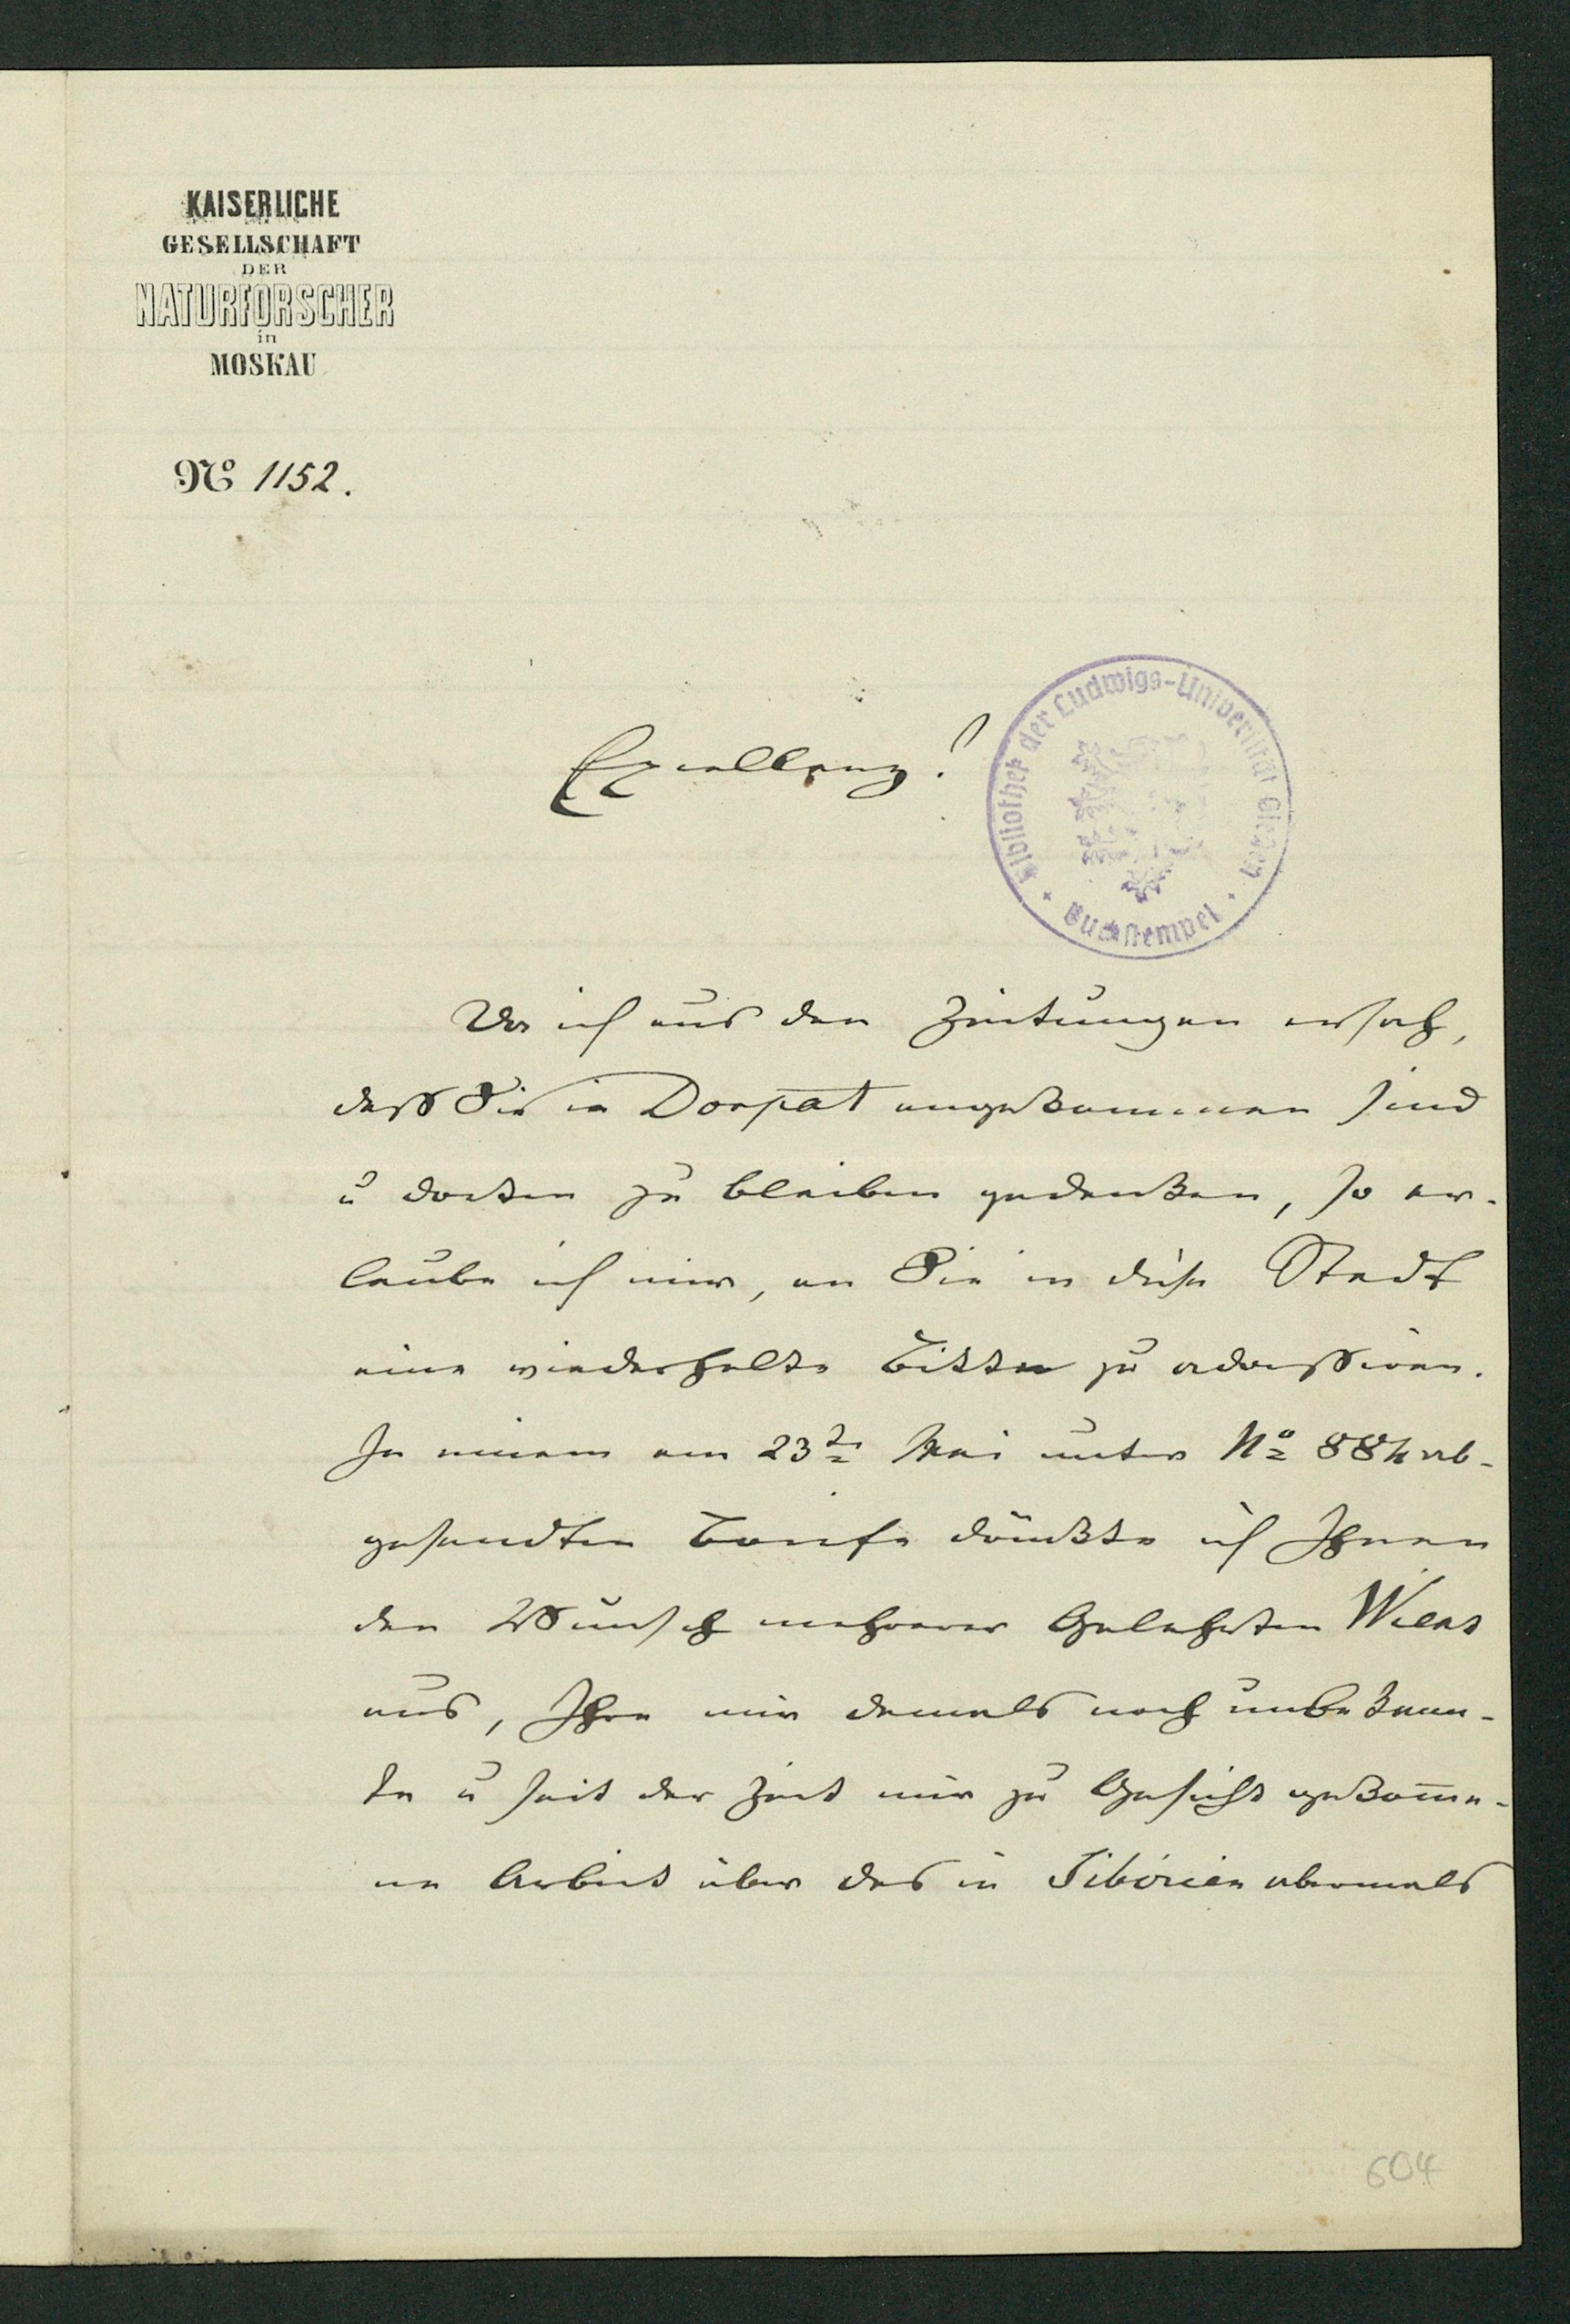 KAISERLICHE
GESELLSCHAFT
DER
NATURFORSCHER
in
MOSKAU
No 1152.
Excellenz!
Bibliothek der Ludwigs-Universität Gießen
Buchstempel
Da ich aus den Zeitungen ersah,
dass Sie in Dorpat angekommen sind
u dorten zu bleiben gedenken, so er-
laube ich mir, an Sie in diese Stadt
eine wiederholte Bitte zu adressiren.
In einem am 23ten Mai unter No 884 ab-
gesandten Briefe drückte ich Ihnen
den Wunsch mehrerer Gelehrten Wiens
aus, Ihre mir damals noch unbekann-
te u seit der Zeit mir zu Gesicht gekomme-
ne Arbeit über das in Sibirien abermals
604